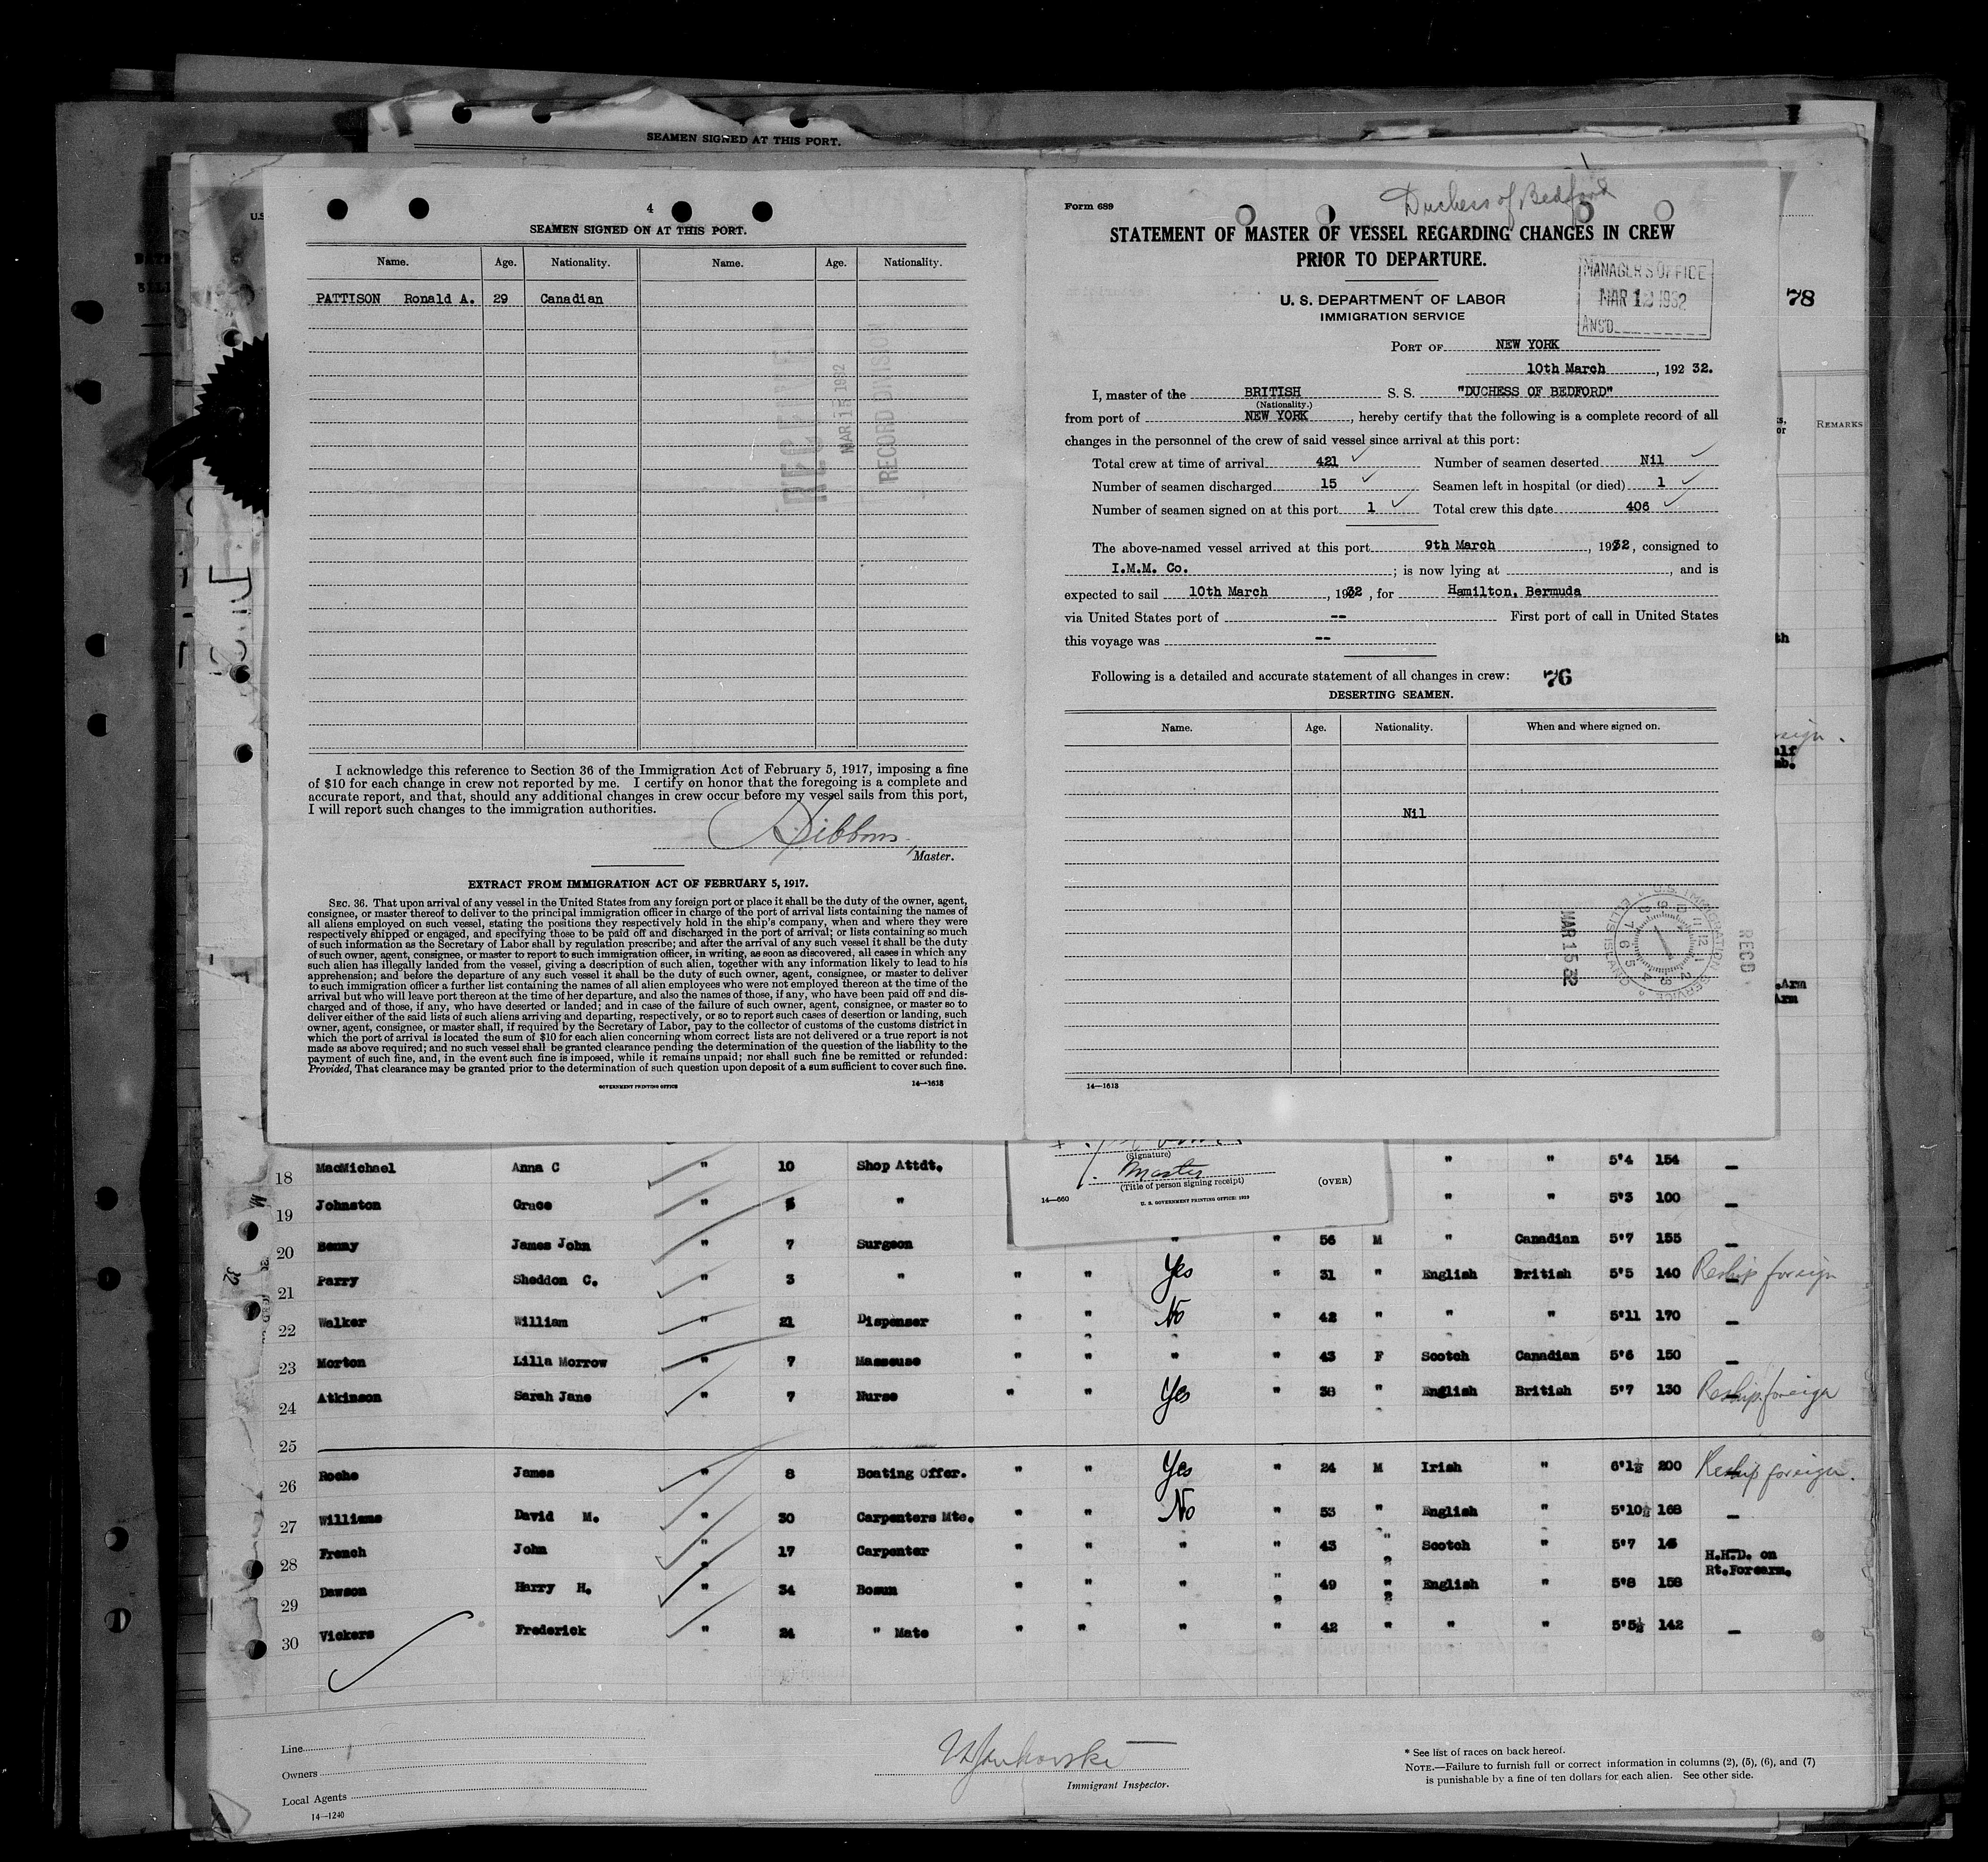 SEAMEN SIGNED AT THIS PORT.
4
SEAMEN SIGNED ON AT THIS PORT.
Name. Age. Nationality. Name. Age. Nationality.
PATTISON Ronald A. 29 Canadian
MAR 15 1932
RECORD DIVISION
I acknowledge this reference to Section 36 of the Immigration Act of February 5, 1917, imposing a fine
of $10 for each change in crew not reported by me. I certify on honor that the foregoing is a complete and
accurate report, and that, should any additional changes in crew occur before my vessel sails from this port,
I will report such changes to the immigration authorities.
Sibbons
, Master.
EXTRACT FROM IMMIGRATION ACT OF FEBRUARY 5, 1917.
SEC. 36. That upon arrival of any vessel in the United States from any foreign port or place it shall be the duty of the owner, agent,
consignee, or master thereof to deliver to the principal immigration officer in charge of the port of arrival lists containing the names of
all aliens employed on such vessel, stating the positions they respectively hold in the ship's company, when and where they were
respectively shipped or engaged, and specifying those to be paid off and discharged in the port of arrival; or lists containing so much
of such information as the Secretary of Labor shall by regulation prescribe; and after the arrival of any such vessel it shall be the duty
of such owner, agent, consignee, or master to report to such immigration officer, in writing, as soon as discovered, all cases in which any
such alien has illegally landed from the vessel, giving a description of such alien, together with any information likely to lead to his
apprehension; and before the departure of any such vessel it shall be the duty of such owner, agent, consignee, or master to deliver
to such immigration officer a further list containing the names of all alien employees who were not employed thereon at the time of the
arrival but who will leave port thereon at the time of her departure, and also the names of those, if any, who have been paid off and dis-
charged and of those, if any, who have deserted or landed; and in case of the failure of such owner, agent, consignee, or master so to
deliver either of the said lists of such aliens arriving and departing, respectively, or so to report such cases of desertion or landing, such
owner, agent, consignee, or master shall, if required by the Secretary of Labor, pay to the collector of customs of the customs district in
which the port of arrival is located the sum of $10 for each alien concerning whom correct lists are not delivered or a true report is not
made as above required; and no such vessel shall be granted clearance pending the determination of the question of the liability to the
payment of such fine, and, in the event such fine is imposed, while it remains unpaid; nor shall such fine be remitted or refunded:
Provided, That clearance may be granted prior to the determination of such question upon deposit of a sum sufficient to cover such fine.
GOVERNMENT PRINTING OFFICE 14—1613
Duchess of Bedford
Form 689
STATEMENT OF MASTER OF VESSEL REGARDING CHANGES IN CREW
PRIOR TO DEPARTURE.
MANAGER'S OFFICE
MAR 1 1932
ANS'D
U. S. DEPARTMENT OF LABOR
IMMIGRATION SERVICE
78
PORT OF NEW YORK
10th March, 192 32.
I, master of the BRITISH S. S. "DUCHESS OF BEDFORD"
(Nationality.)
from port of NEW YORK, hereby certify that the following is a complete record of all
changes in the personnel of the crew of said vessel since arrival at this port:
Total crew at time of arrival 421 Number of seamen deserted Nil
Number of seamen discharged 15 Seamen left in hospital (or died) 1
Number of seamen signed on at this port 1 Total crew this date 406
The above-named vessel arrived at this port 9th March, 1932, consigned to
I.M.M. Co. ; is now lying at , and is
expected to sail 10th March, 1932, for Hamilton, Bermuda
via United States port of -- First port of call in United States
this voyage was --
Following is a detailed and accurate statement of all changes in crew: 76
DESERTING SEAMEN.
Name. Age. Nationality. When and where signed on.
Nil
U.S. IMMIGRATION SERVICE ELLIS ISLAND
MAR 15 32
RECD
14—1613
REMARKS
(Signature)
Master
(Title of person signing receipt)
14—660 (OVER)
U. S. GOVERNMENT PRINTING OFFICE: 1929
18 MacMichael Anna C " 10 Shop Attdt. " " 5'4 154 –
19 Johnston Grace " " " " 5'3 100 –
20 Benny James John " 7 Surgeon " " 56 M " Canadian 5'7 155 –
21 Parry Sheddon C. " 3 " " " Yes " 31 " English British 5'5 140 – Reship foreign
22 Walker William " 21 Dispenser " " No " 42 " " " 5'11 170 –
23 Morton Lilla Morrow " 7 Masseuse " " " " 43 F Scotch Canadian 5'6 150 –
24 Atkinson Sarah Jane " 7 Nurse " " Yes " 38 " English British 5'7 130 – Reship foreign
25
26 Roche James " 8 Boating Offer. " " Yes " 24 M Irish " 6'1½ 200 – Reship foreign.
27 Williams David M. " 30 Carpenters Mte. " " No " 53 " English " 5'10½ 168 –
28 French John " 17 Carpenter " " " " 43 " Scotch " 5'7 H.H.D. on
Rt.Forearm.
29 Dawson Harry H. " 34 Bosun " " " " 49 " English " 5'8 158
30 Vickers Frederick " 24 " Mate " " " " 42 " " " 5'5½ 142 –
Line
Owners
Local Agents
14—1240
Immigrant Inspector.
* See list of races on back hereof.
NOTE.—Failure to furnish full or correct information in columns (2), (5), (6), and (7)
is punishable by a fine of ten dollars for each alien. See other side.